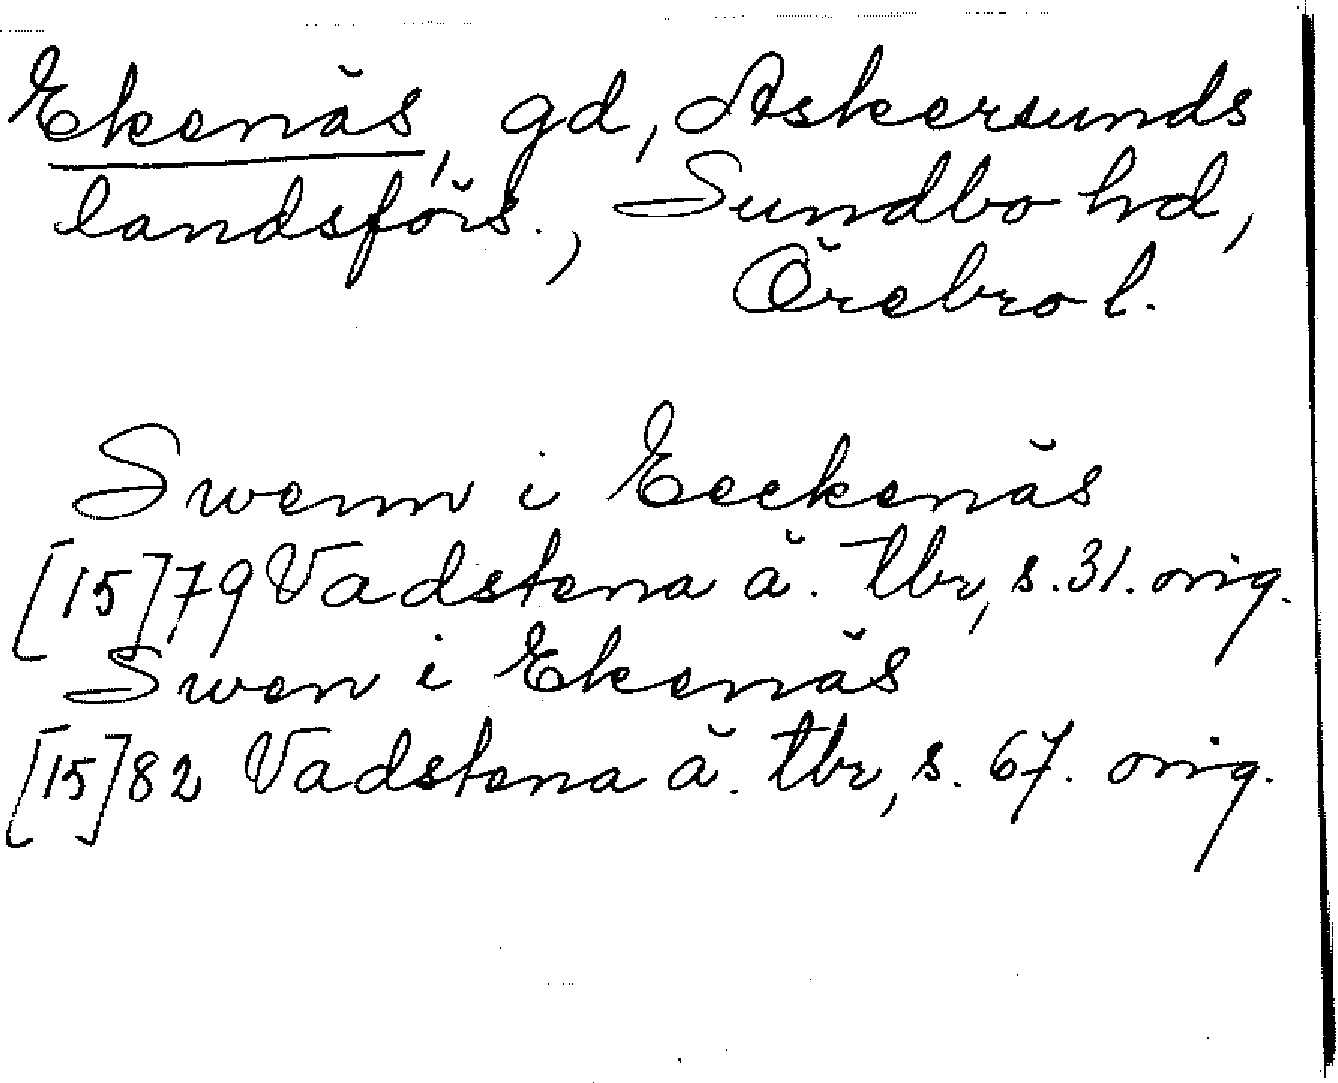 Ekenäs, gd, Askersunds
landsförs., Sundbo hd,
Örebro l.
Swenn i Eeckenäs
[15]79 Vadstena ä. tbr, s. 31. orig.
Swen i Ekenäs
[15]82 Vadstena ä. tbr, s. 67. orig.